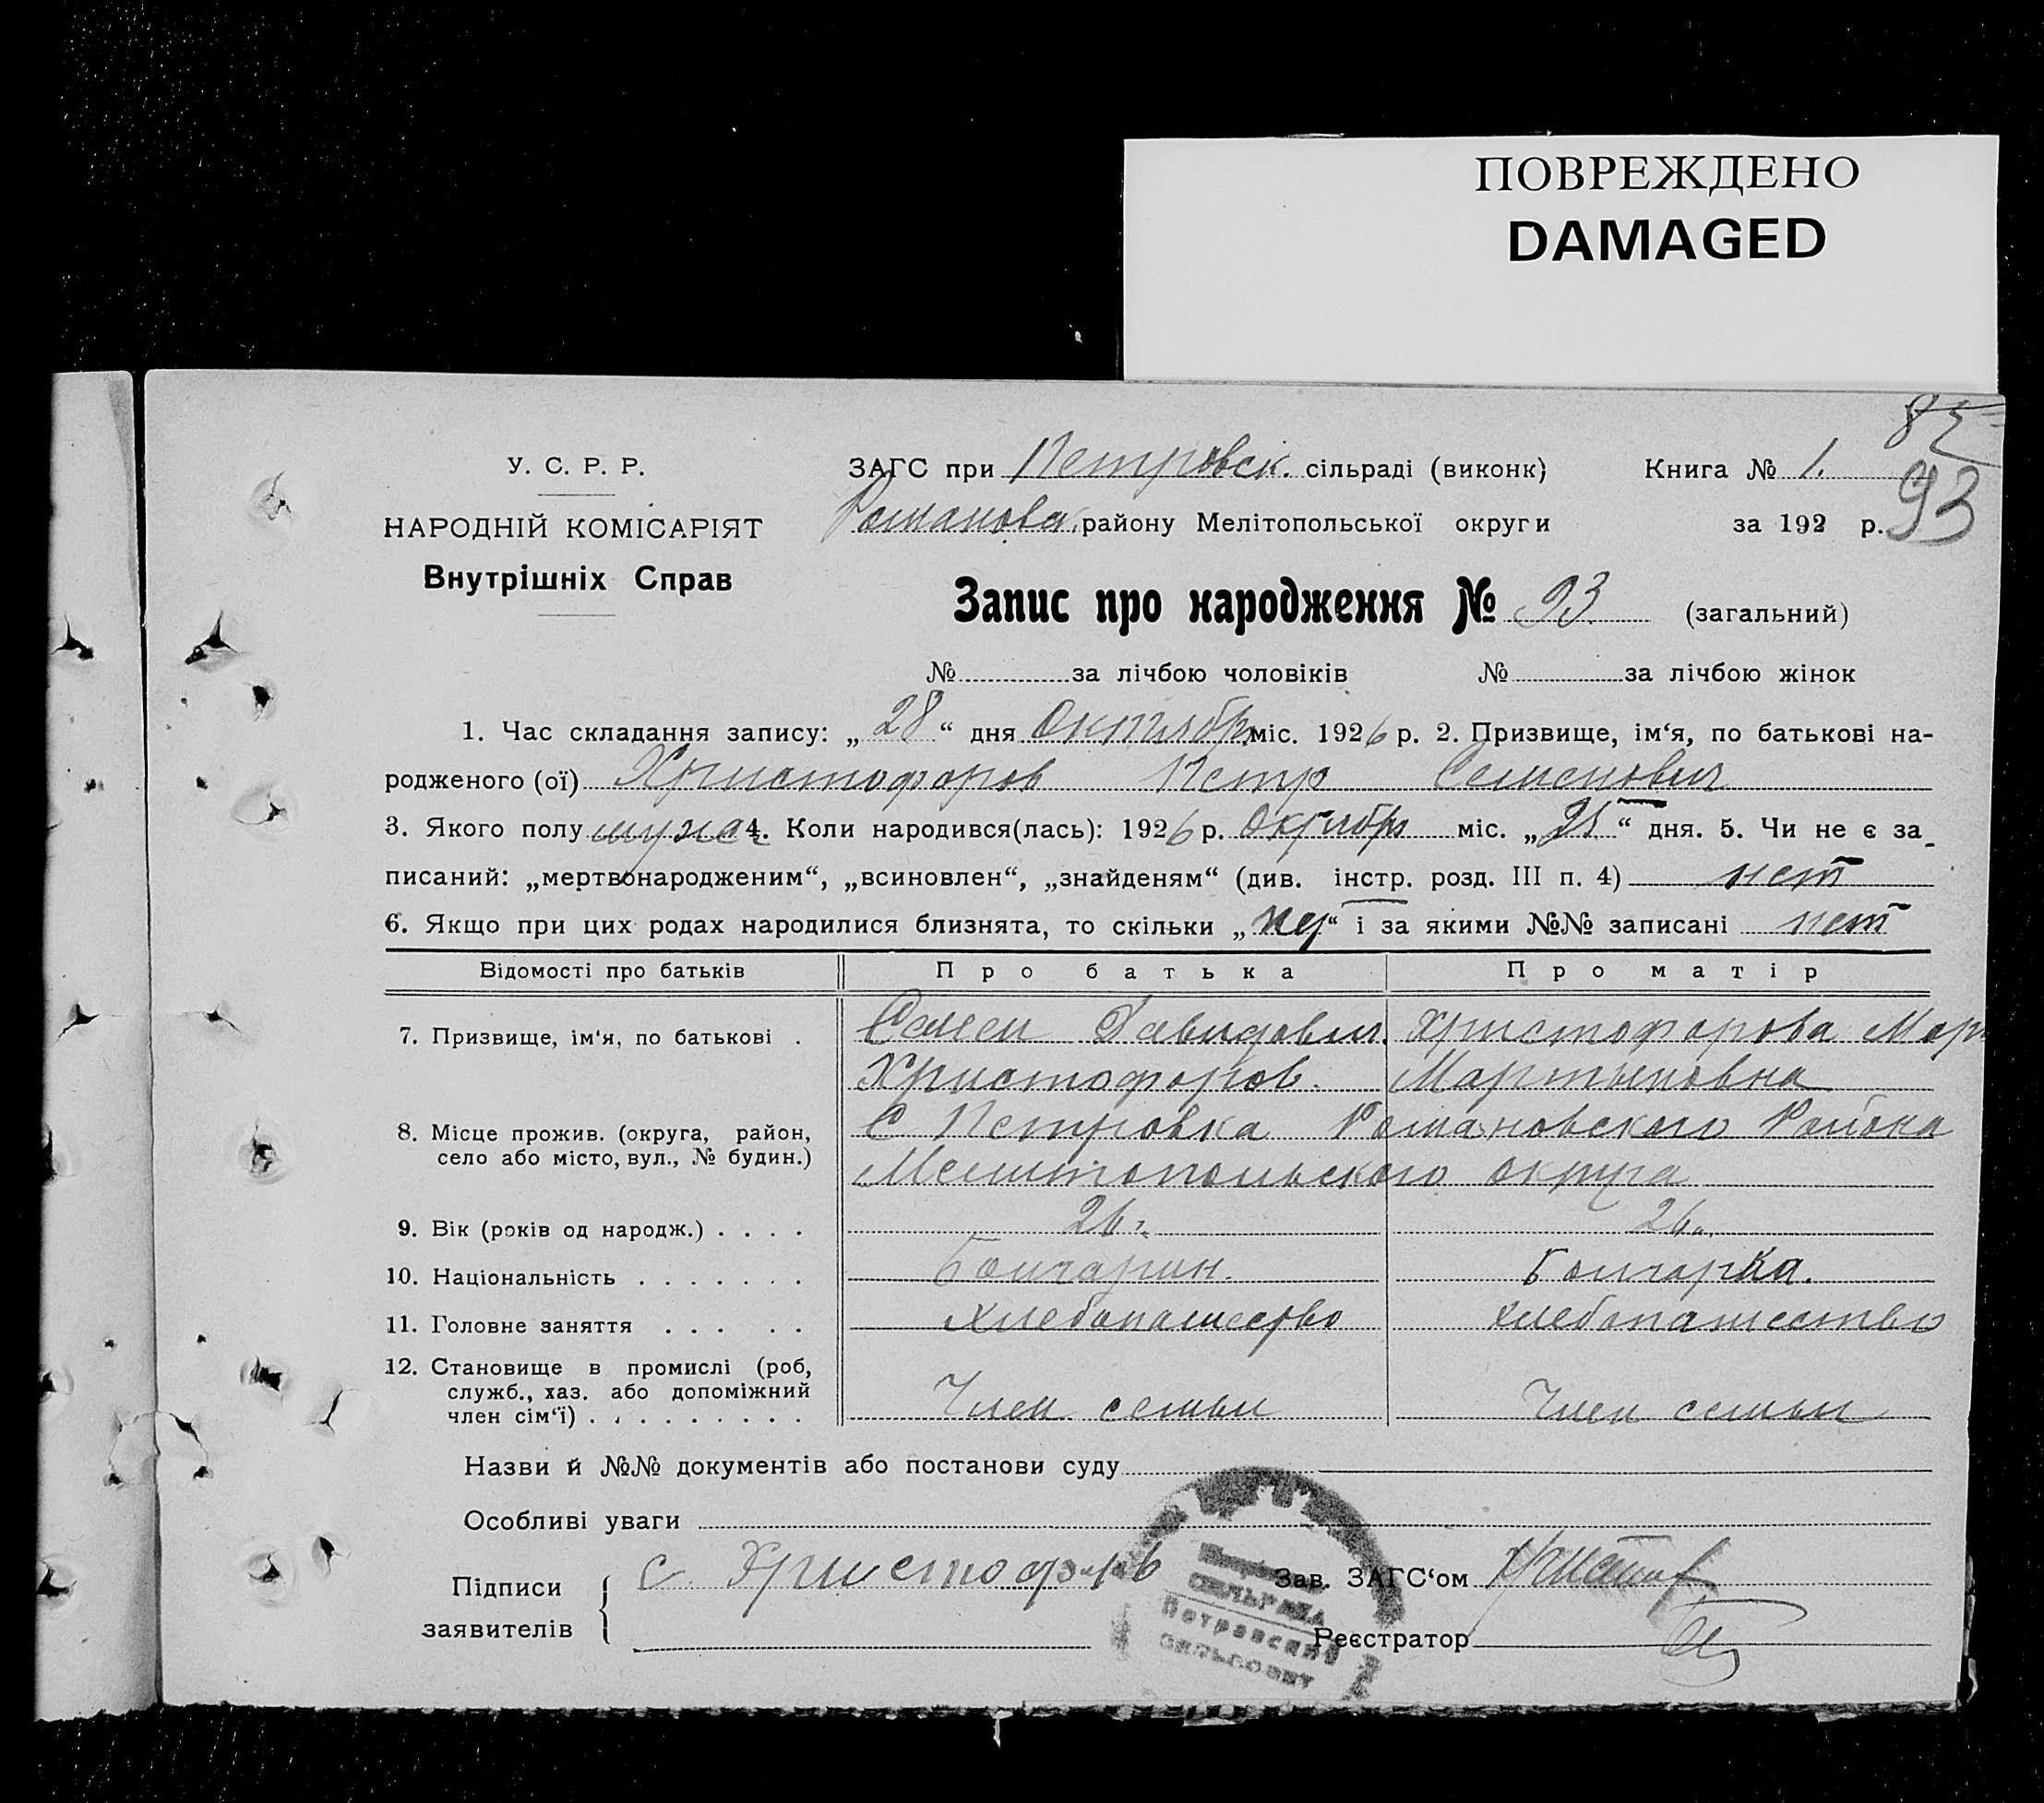 ПОВРЕЖДЕНО
DAMAGED
У. С. Р. Р.
НАРОДНІЙ КОМІСАРІЯТ
Внутрішніх Справ
ЗАГС при Петровск. сільраді (виконк) Книга № 1.
Романовск. району Мелітопольської округи за 192 р. 93
Запис про народження № 93 (загальний)
№ за лічбою чоловіків № за лічбою жінок
1. Час складання запису: „28“ дня Октября міс. 1926 р. 2. Призвище, ім‘я, по батькові на-
родженого (ої) Христофоров Петр Семенович
3. Якого полу 4. Коли народився(лась): 1926 р. Октября міс. „25“ дня. 5. Чи не є за-
писаний: „мертвонародженим“, „всиновлен“, „знайденям“ (див. інстр. розд. III п. 4) нет
6. Якщо при цих родах народилися близнята, то скільки „нет“ і за якими №№ записані нет
Відомості про батьків Про батька Про матір
7. Призвище, ім‘я, по батькові . Семен Давидович Христофорова
Христофоров. Мартыновна
8. Місце прожив. (округа, район, село або місто, вул., № будин.) С Петровка Романовского Района
Мелитопольского округа
9. Вік (років од народж.) . . . . 26 г. 26 г.
10. Національність . . . . . . . Болгарин. Болгарка.
11. Головне заняття . . . . . Хлебопашество хлебопашество
12. Становище в промислі (роб,
служб., хаз. або допоміжний
член сім‘ї) . . . . . . . . . Член семьи Член семьи
Назви й №№ документів або постанови суду
Особливі уваги
Підписи
заявителів
С Христофоров
Зав. ЗАГС‘ом
Реєстратор
СІЛЬРАДА
Петровский
сельсовет